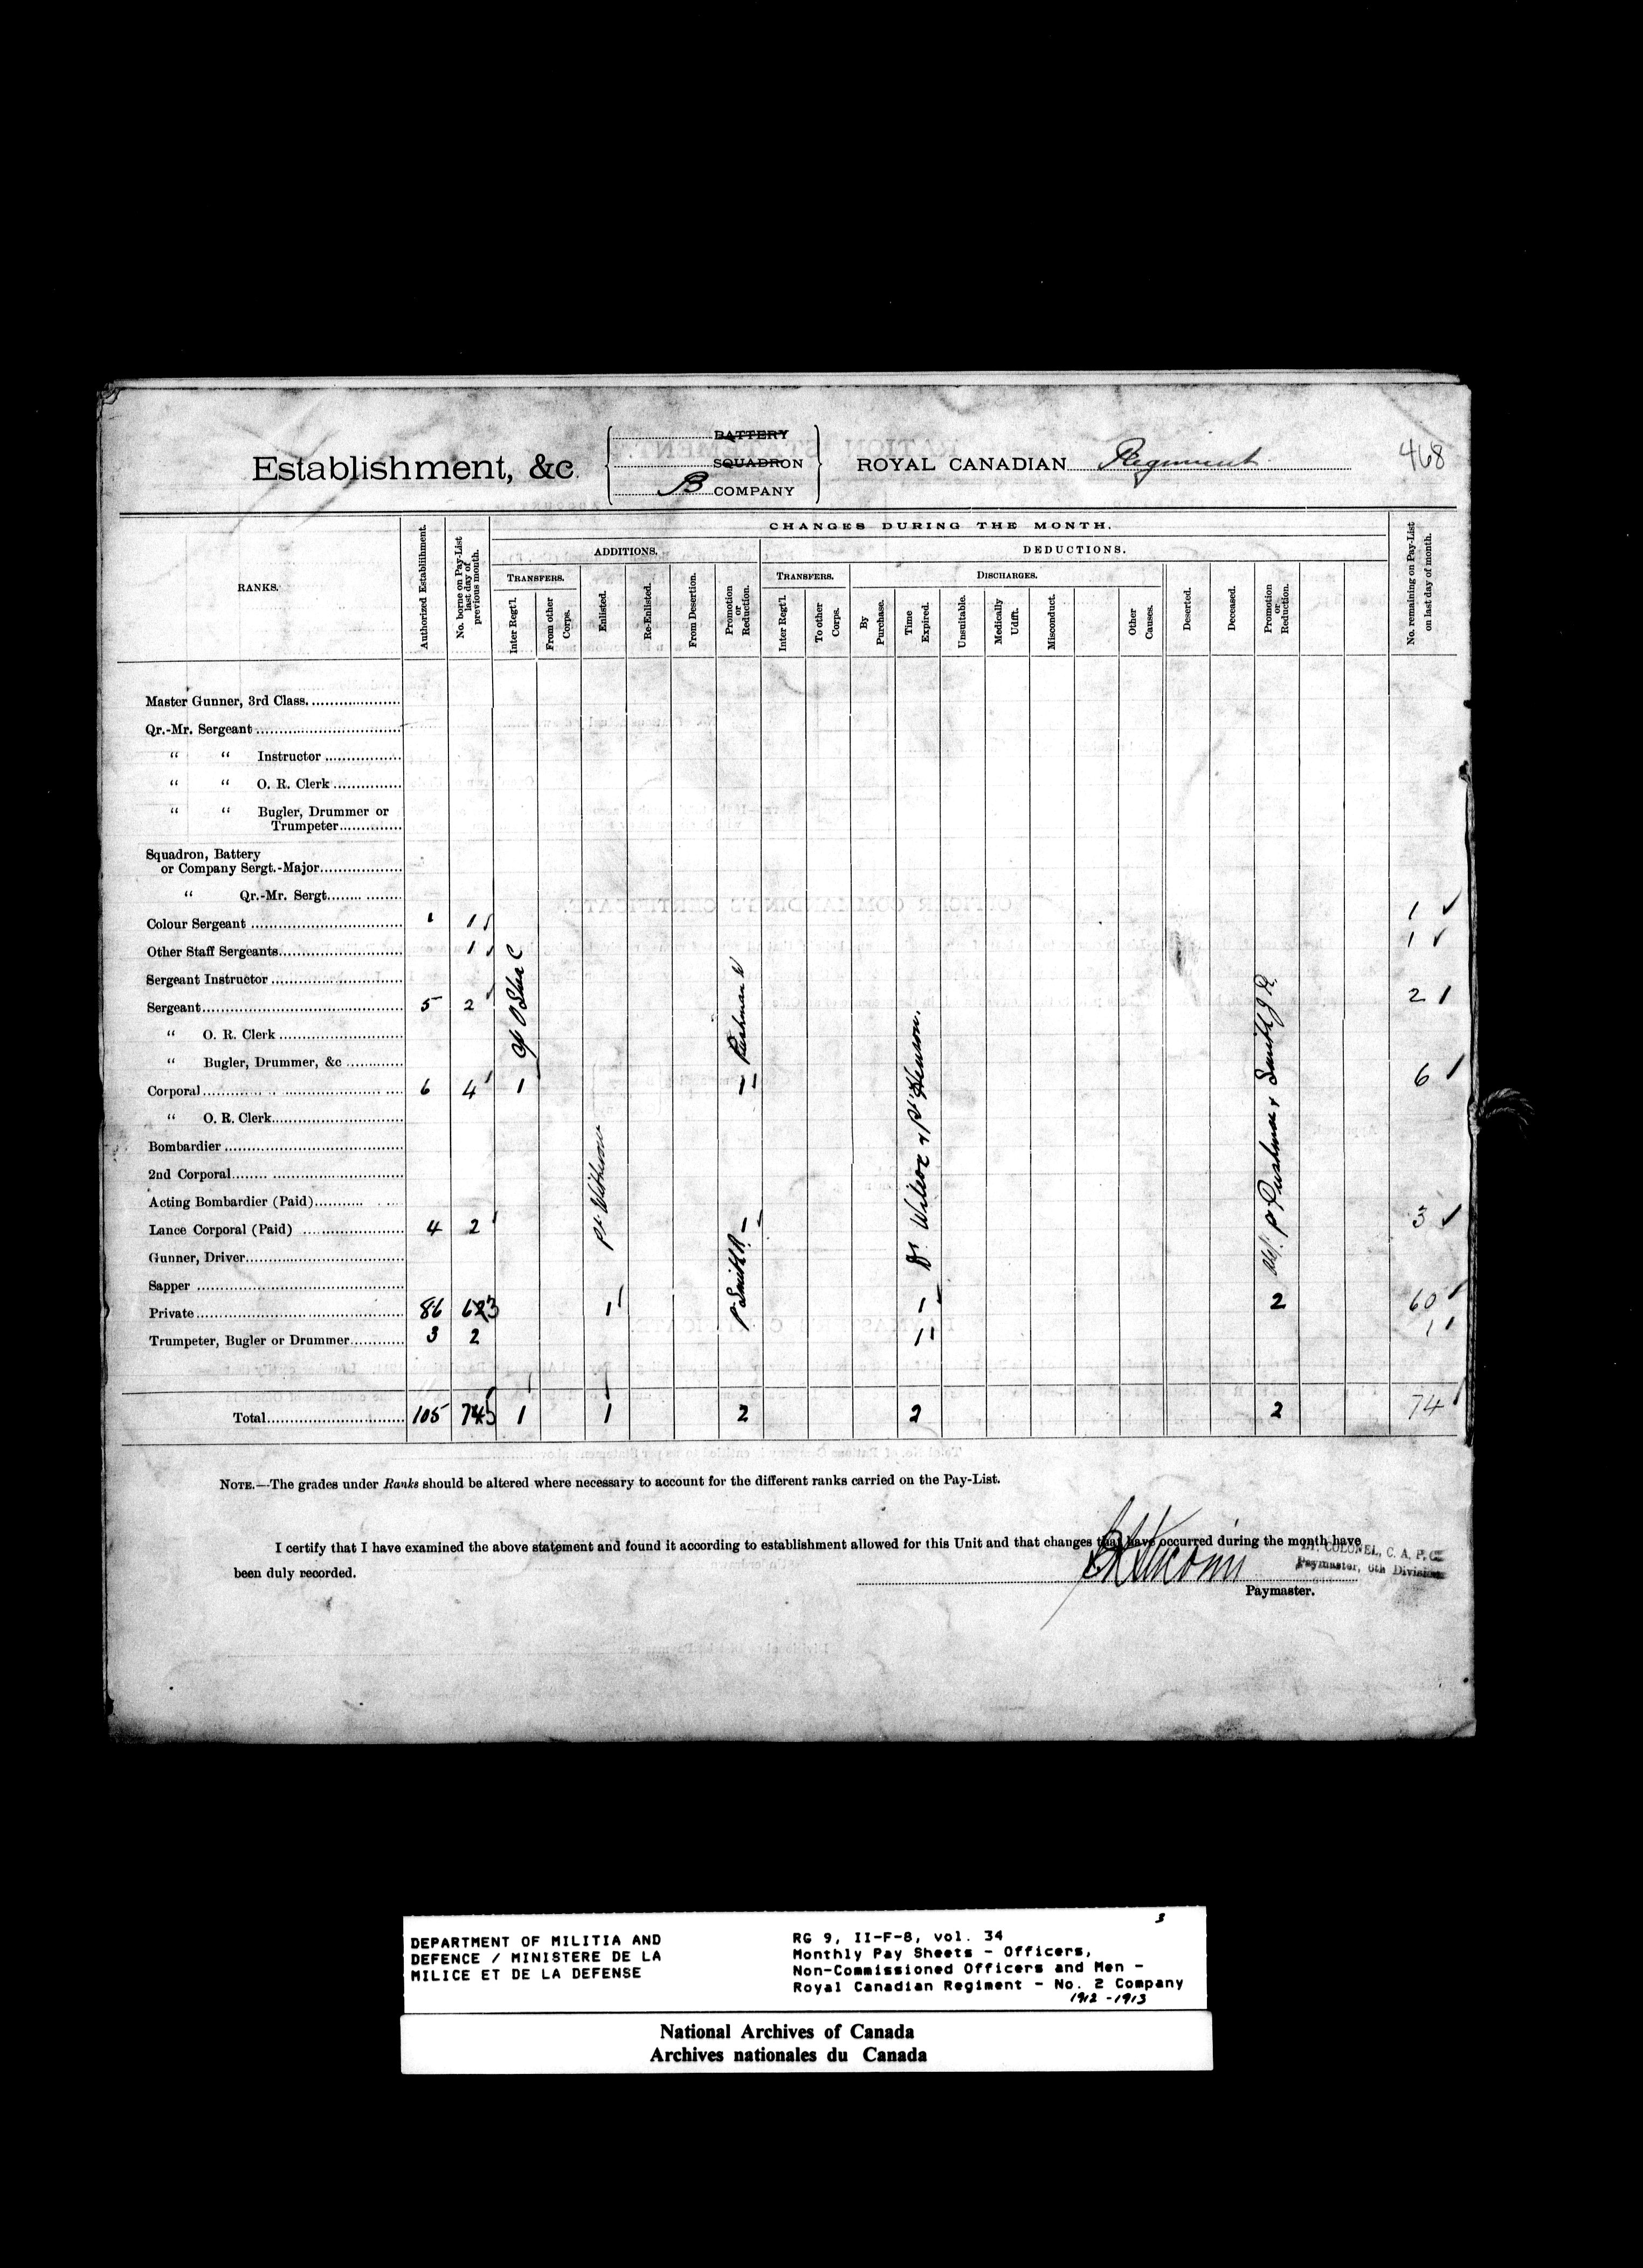 468
Establishment, &c.
BATTERY
SQUADRON
B COMPANY
ROYAL CANADIAN Regiment
RANKS.
Authorized Establishment.
No. borne on Pay-List last day of previous month.
CHANGES DURING THE MONTH.
ADDITIONS.
DEDUCTIONS.
TRANSFERS.
TRANSFERS.
DISCHARGES.
Inter Regt'l.
From other Corps.
Enlisted.
Re-Enlisted.
From Desertion.
Promotion or Reduction.
Inter Regt'l.
To other Corps.
By Purchase.
Time Expired.
Unsuitable.
Medically Udfft.
Misconduct.
Other Causes.
Deserted.
Deceased.
Promotion or Reduction.
No. remaining on Pay-List on last day of month.
Master Gunner, 3rd Class.
Qr.-Mr. Sergeant
" " Instructor
" " O. R. Clerk
" " Bugler, Drummer or
Trumpeter
Squadron, Battery
or Company Sergt.-Major
" Qr.-Mr. Sergt.
Colour Sergeant 1 1 1
Other Staff Sergeants 1 1
Sergeant Instructor
Sergeant 5 2 2
" O. R. Clerk
" Bugler, Drummer, &c
Corporal 6 4 1 1 6
" O. R. Clerk
Bombardier
2nd Corporal
Acting Bombardier (Paid)
Lance Corporal (Paid) 4 2 1 3
Gunner, Driver
Sapper
Private 86 623 1 1 2 60
Trumpeter, Bugler or Drummer 3 2 1 1
Total 105 745 1 1 2 2 2 74
O'Shea C
Pt
Smith
Dr. Wilcox & Pt Henson.
Pushman & Smith J R
NOTE.—The grades under Ranks should be altered where necessary to account for the different ranks carried on the Pay-List.
I certify that I have examined the above statement and found it according to establishment allowed for this Unit and that changes that have occurred during the month have
been duly recorded.
LT. COLONEL, C. A. P. C.
Paymaster, 6th Division
Paymaster.
3
DEPARTMENT OF MILITIA AND
DEFENCE / MINISTERE DE LA
MILICE ET DE LA DEFENSE
RG 9, II-F-8, vol. 34
Monthly Pay Sheets - Officers,
Non-Commissioned Officers and Men -
Royal Canadian Regiment - No. 2 Company
1912-1913
National Archives of Canada
Archives nationales du Canada